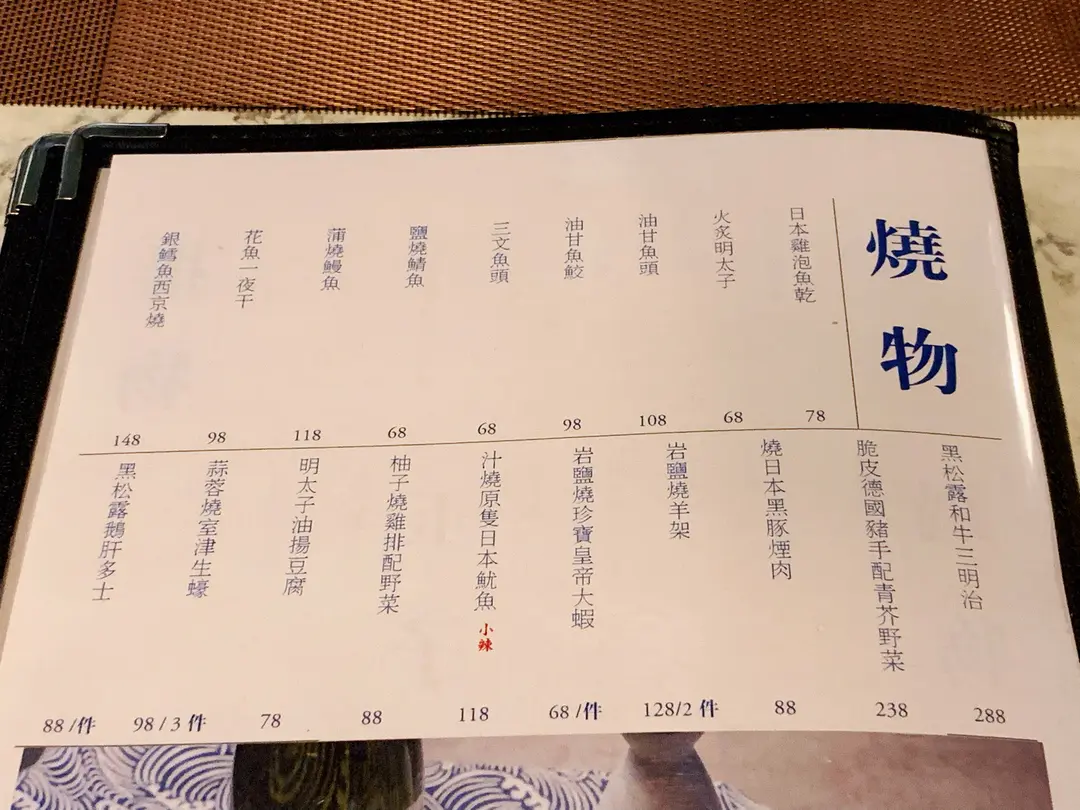 燒物
日本雞泡魚乾 78
火炙明太子 68
油甘魚頭 108
油甘魚鮫 98
三文魚頭 68
鹽燒鯖魚 68
蒲燒鰻魚 118
花魚一夜干 98
銀鱈魚西京燒 148
黑松露和牛三明治 288
脆皮德國豬手配青芥野菜 238
燒日本黑豚煙肉 88
岩鹽燒羊架 128/2 件
岩鹽燒珍寶皇帝大蝦 68 /件
汁燒原隻日本魷魚 小辣 118
柚子燒雞排配野菜 88
明太子油揚豆腐 78
蒜蓉燒室津生蠔 98 / 3 件
黑松露鵝肝多士 88 /件